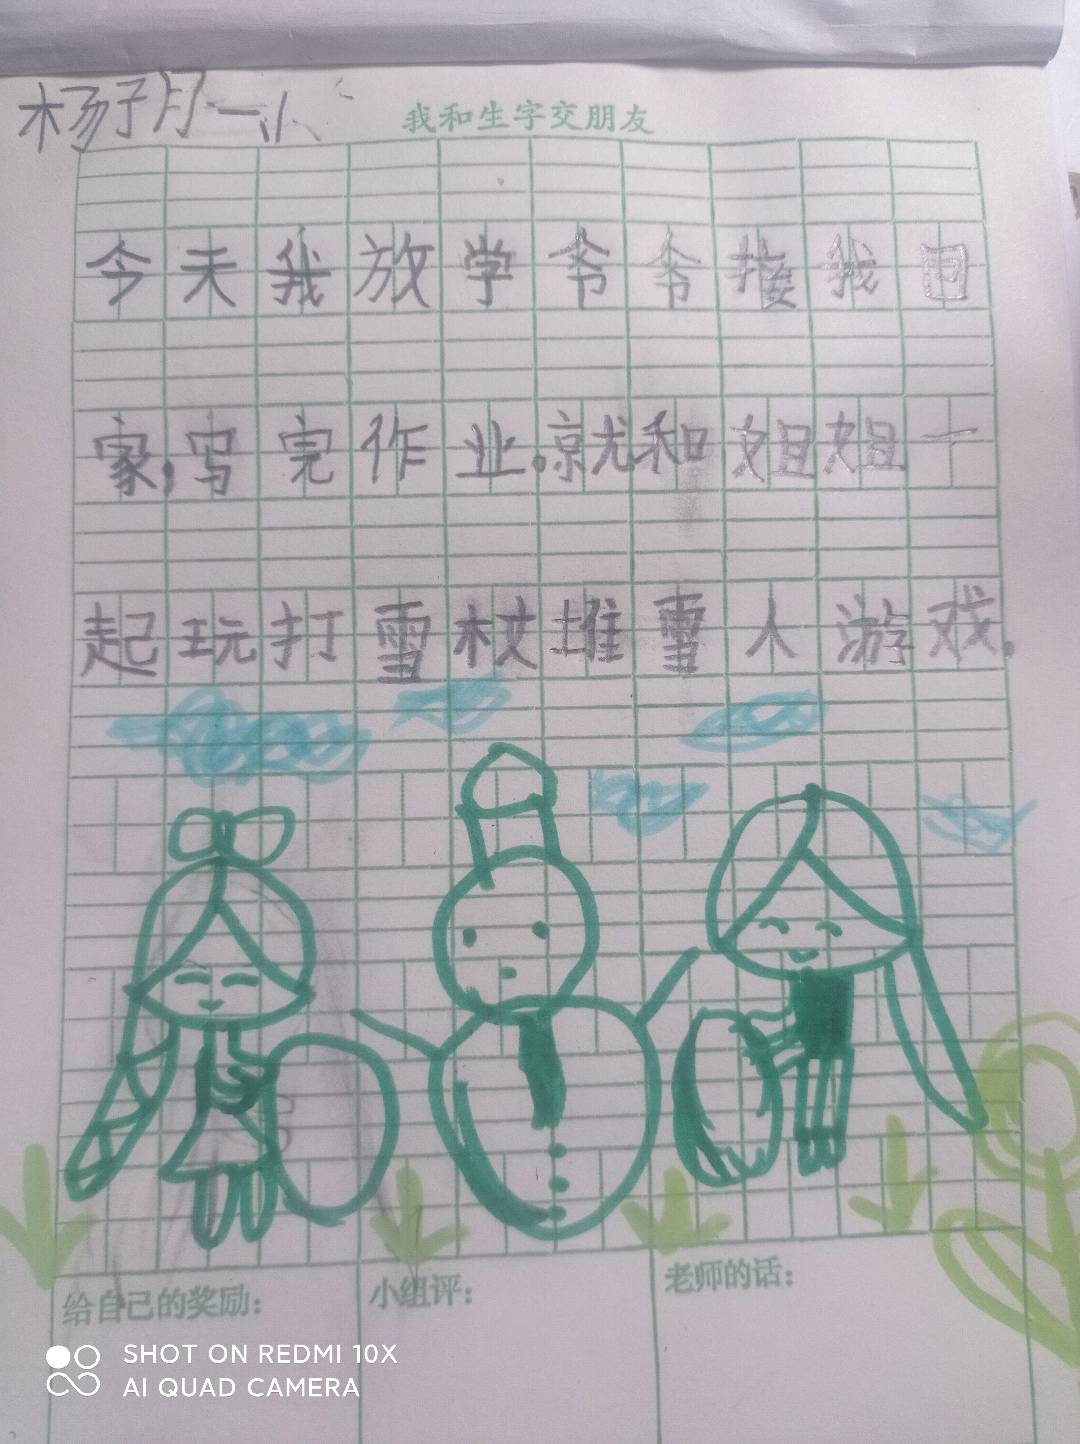 杨子月一小
我和生字交朋友
今天我放学爷爷接我回
家,写完作业。就和姐姐一
起玩打雪杖堆雪人游戏。
给自己的奖励:
小组评:
老师的话:
SHOT ON REDMI 10X
AI QUAD CAMERA